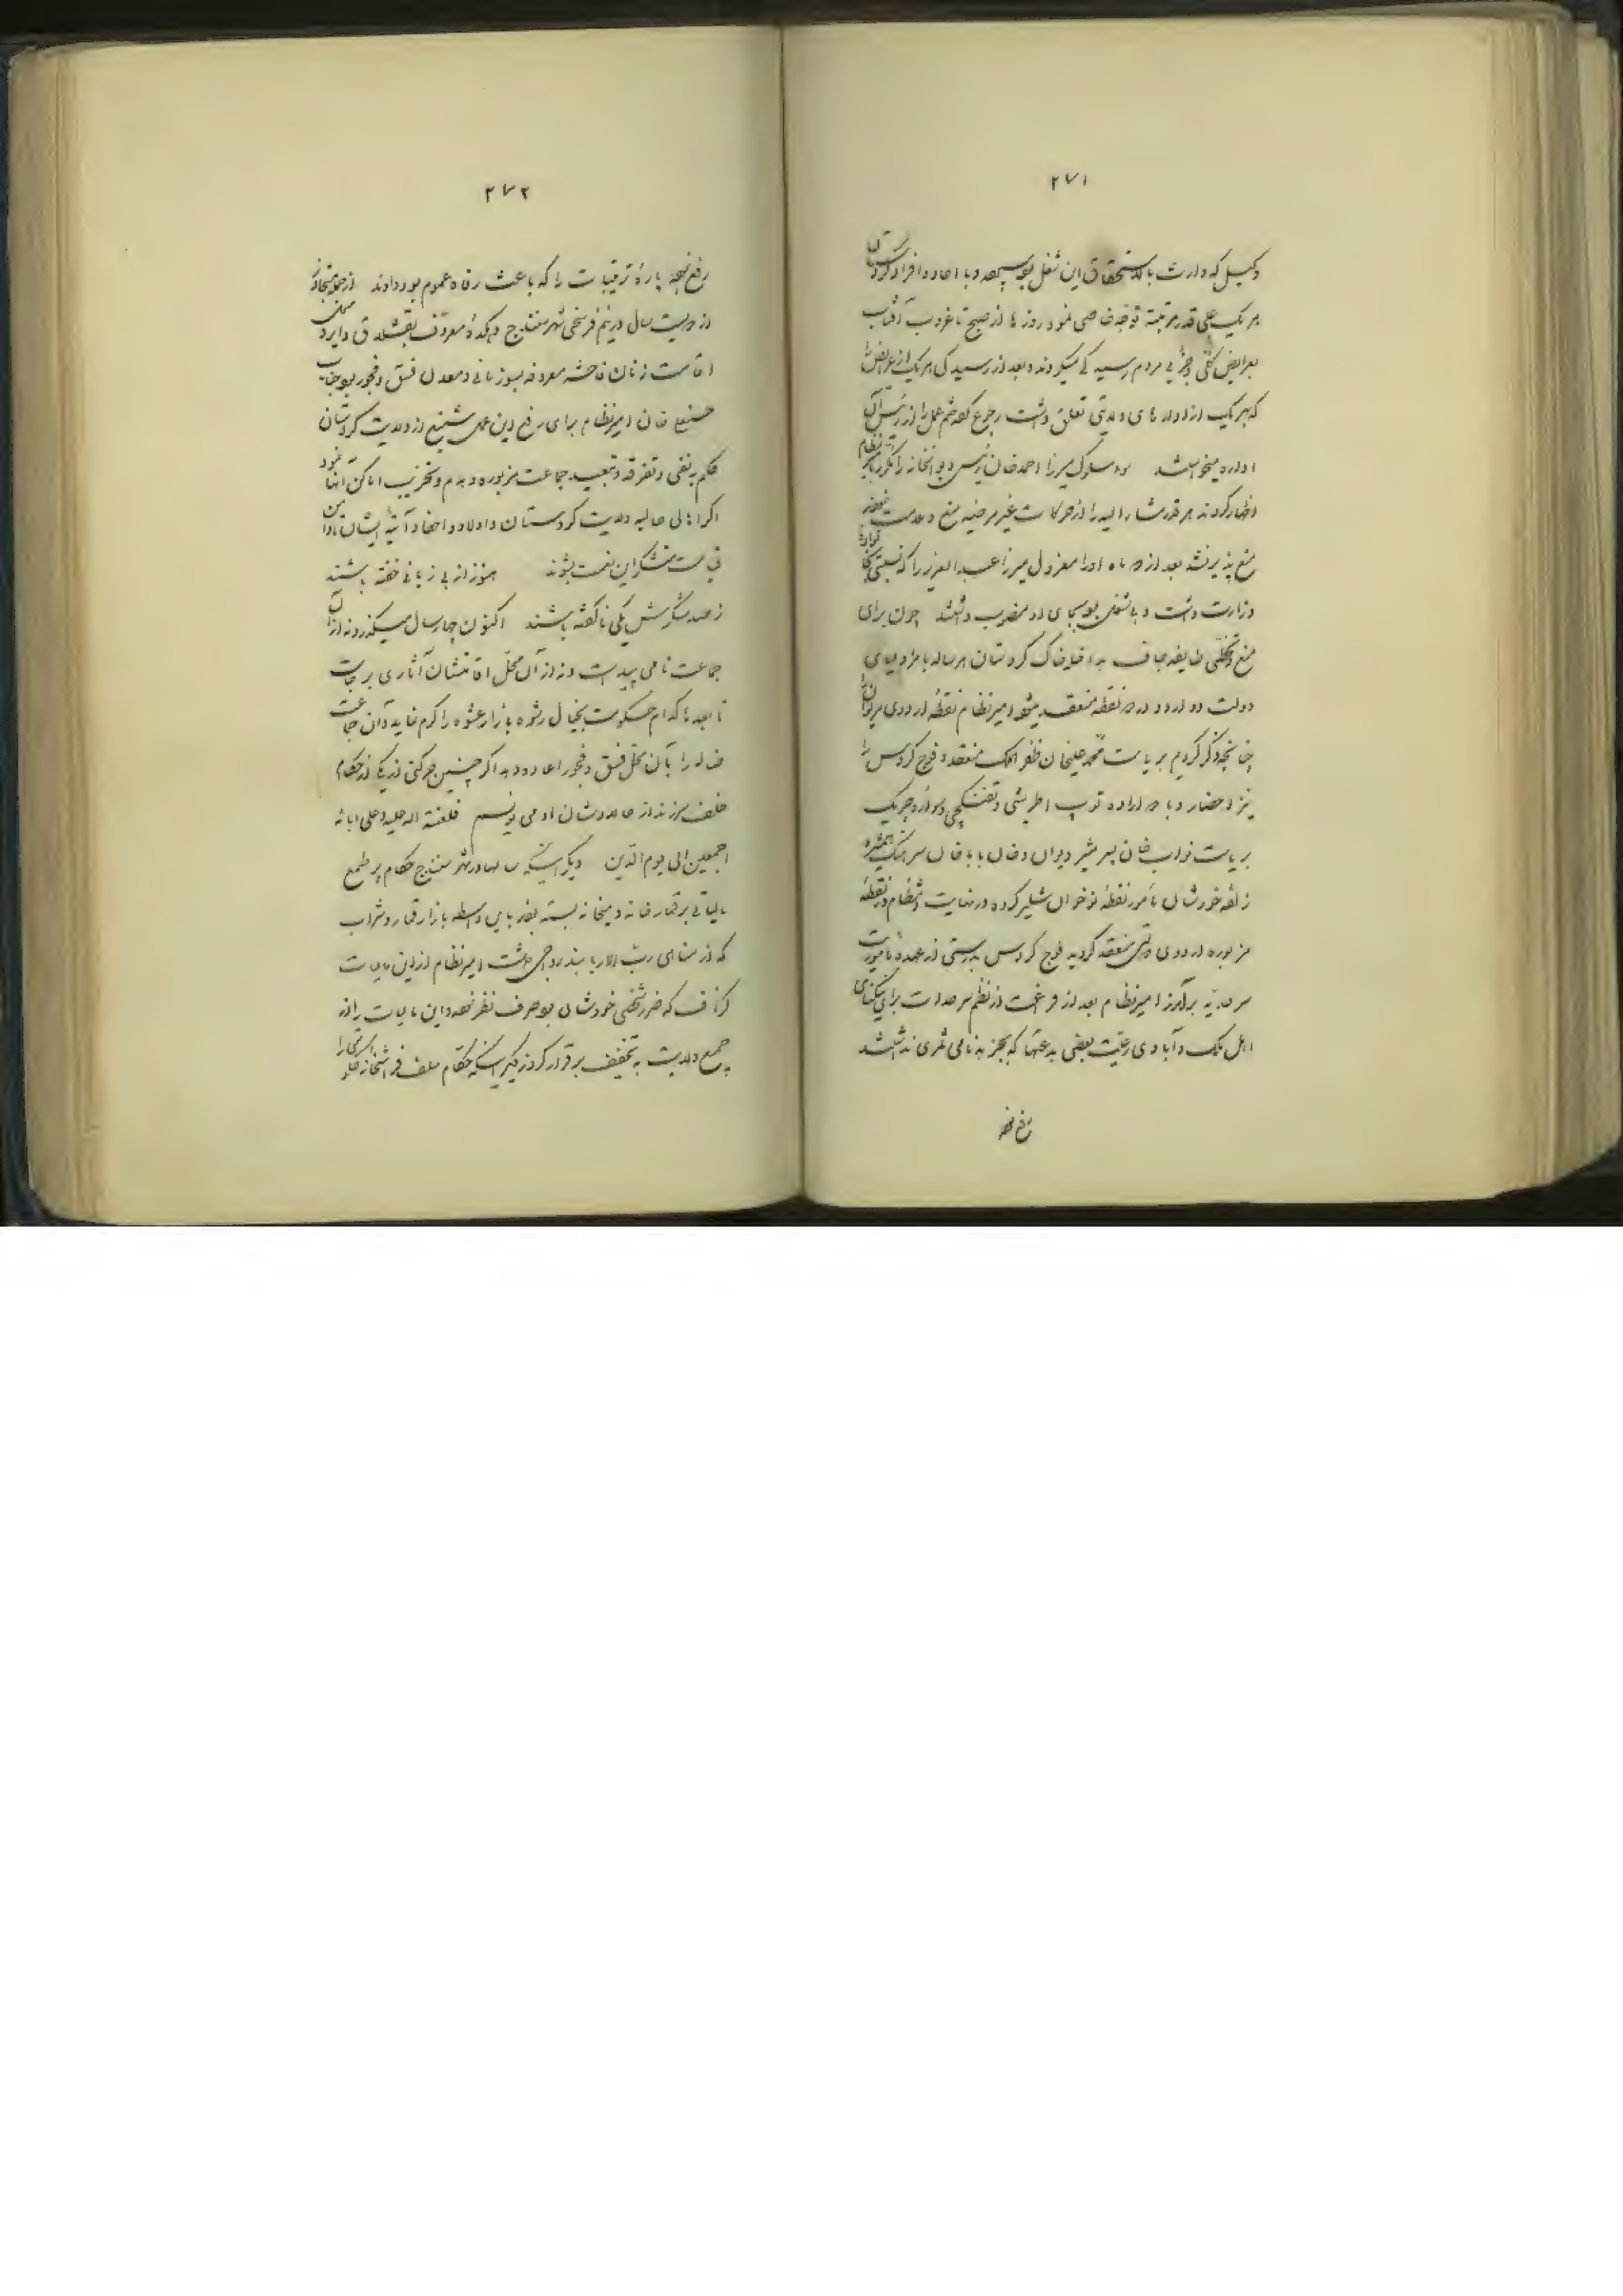 ۲۷۱
وکیل که وارث بالاستحقاق این شغل بود سپرده و با احاد و افراد کردستان
هر یک علی قدر مرتبته توجه خاصی نمود روزها از صبح تا غروب آفتاب
بعرایض کلی و جزئی مردم رسیدگی میکردند و بعد از رسیدگی هر یک از عرایض را
که بهر یک از اداره های ولایتی تعلق داشت رجوع کرده ختم عمل را از رئیس آن
اداره میخواستند سوء سلوک میرزا احمد خان رئیس دیوانخانه را مکرر به امیر نظام
اظهار کردند هر قدر مشار الیه را از حرکات غیر مرضیه منع و ملامت نمودند
منع پذیر نشد بعد از دو ماه او را معزول میرزا عبدالعزیز را که نسبتی بخانواده
وزارت داشت و بی شغل بود بجای او منصوب داشتند چون برای
منع و تخطی طایفه جاف به اخلاف کردستان هر ساله با مر اولیای
دولت دو اردو در دو نقطه منعقد میشود امیر نظام نقطه اردوی مریوان را
چنانچه ذکر کردیم بریاست محمد علیخان ظفر الملک منعقد و فوج کروس را
نیز احضار و با دو اراده توپ اطریشی و تفنگچی و سواره چریک
بریاست نواب خان پسر مشیر دیوان و خان بابا خان سرهنگ همشیره
زاده خودشان مامور نقطه نوخوان شلیر کرده در نهایت انتظام در نقطه
مزبوره اردوی دولتی منعقد گردید فوج کروس بدرستی از عهده ماموریت
سرحدیه برآمد امیر نظام بعد از فراغت از نظم سرحدات برای نیکنامی
اهل ملک و آبادی رعیت بعضی بدعتها که بجز بدنامی ثمری نداشتند
رفع نموده
۲۷۲
رفع نموده پاره ترقیات را که باعث رفاه عموم بود دادند از جمله متجاوز
از دویست سال در نیم فرسخی شهر سنندج دهکده معروف بقشلاق و ایرد محل
اقامت زنان فاحشه معروفه بسوزمانی و معدن فسق و فجور بود جناب
حسنعلی خان امیر نظام برای رفع این عمل شنیع از ولایت کردستان
حکم به نفی و تفرقه و تبعید جماعت مزبوره و بدم و تخریب اماکن آنها نمود
اگر اهالی حالیه ولایت کردستان و اولاد و احفاد آتیه ایشان تا دامن
قیامت متشکر این نعمت بشوند هنوز از بی زبانی خفته باشند
ز صد شکرش یکی ناگفته باشند اکنون چهار سال میگذرد نه از آن
جماعت نامی پیداست و نه از آن محل اقامتشان آثاری برجاست
تا بعدها کدام حکومت بخیال رشوه بازار عشوه را گرم نماید و آن جماعت
ضاله را بآن محل فسق و فجور اعاده دهد اگر چنین حرکتی از یکی از حکام
خلف سر زند از حالا در شان او می نویسم فلعنة الله علیه و علی ابائه
اجمعین الی یوم الدین دیگر اینکه سالها در شهر سنندج حکام پر طمع
مالیاتی بر قمارخانه و میخانه بسته بودند باین واسطه بازار قمار و شراب
که از مناهی رب الارباب بود رواجی داشت امیر نظام از این مالیات
گزاف که ضرر شخصی خودشان بود صرف نظر نموده این مالیات را از
جمع ولایت به تخفیف برقرار کردند دیگر اینکه حکام سلف فراشخانه